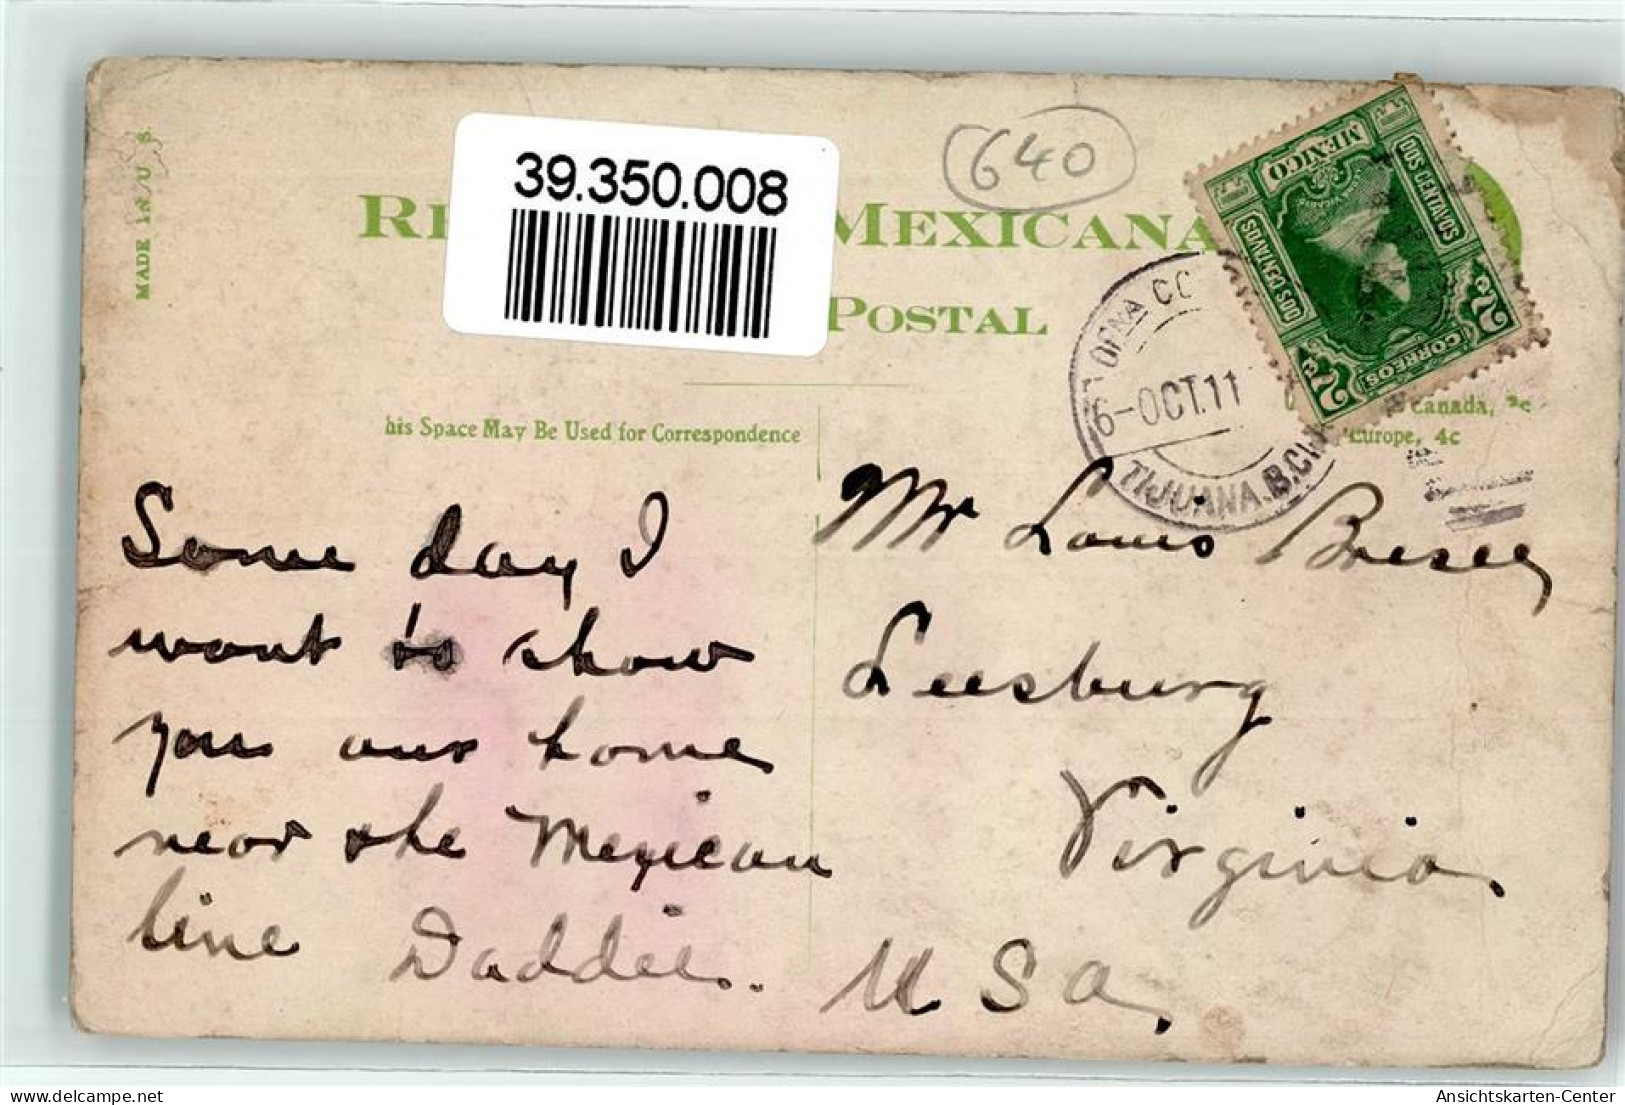 MADE IN U. S.
39.350.008
640
MEXICANA
POSTAL
MEXICO
DOS CENTAVOS
DOS CENTAVOS
CORREOS
2
2
6-OCT.11
TIJUANA.B.C
his Space May Be Used for Correspondence
Canada, 2c
Europe, 4c
Some day I
want to show
you our home
near the Mexican
line Daddie.
Mr Louis
Leesburg
Virginia,
U S a,
delcampe.net
Ansichtskarten-Center